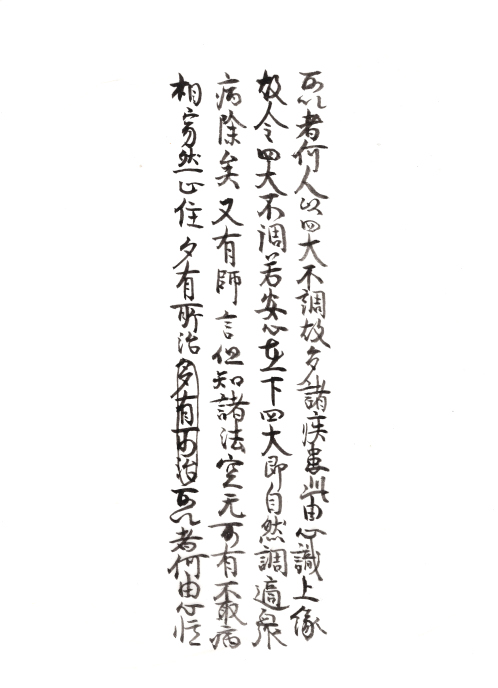 所以者何人以四大不調故多諸疾患此由心識上緣
故令四大不調若安心在下四大即自然調適眾
病除矣又有師言但知諸法空无所有不取病
相寂然止住多有所治多有所治所以者何由心憶